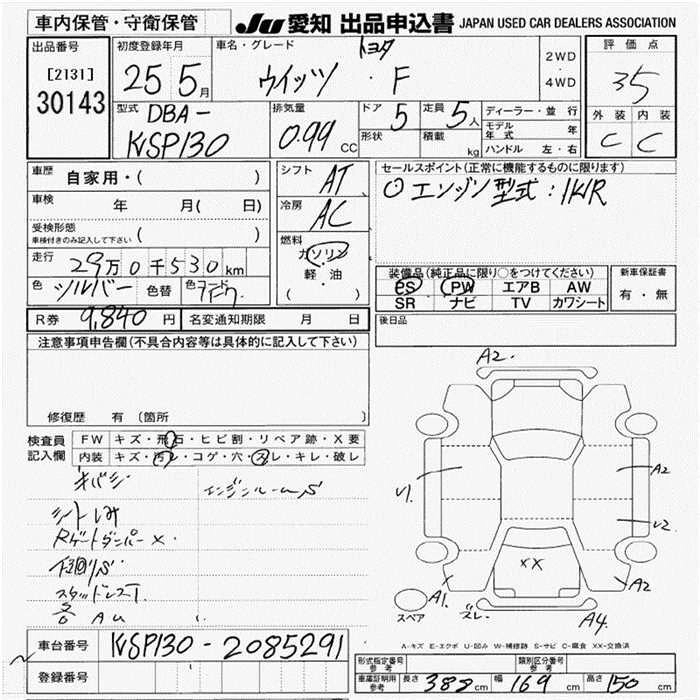 車内保管・守衛保管
JU 愛知 出品申込書 JAPAN USED CAR DEALERS ASSOCIATION
出品番号
[2131]
30143
初度登録年月
25 5月
車名・グレード
トヨタ
ウイッツ・F
2WD
4WD
評価点
35
外装 内装
C C
型式
DBA-
KSP130
排気量
0.99 CC
ドア 5
形状
定員 5人
積載 kg
ディーラー・並行
モデル年式 年
ハンドル 左・右
車歴 自家用・( )
車検 年 月( 日)
受検形態
車検付きのみ記入して下さい ( )
走行 29万0千530km
色 シルバー 色替 色コード
R券 9,840円 名変通知期限 月 日
シフト AT
冷房 AC
燃料
ガソリン
軽・油
( )
セールスポイント(正常に機能するものに限ります)
○エンジン型式:1KR
装備品(純正品に限り○をつけてください)
PS PW エアB AW
SR ナビ TV カワシート
新車保証書
有・無
後日品
注意事項申告欄(不具合内容等は具体的に記入して下さい)
修復歴 有 〔箇所 〕
検査員記入欄
FW キズ・飛石・ヒビ割・リペア跡・X要
内装 キズ・汚レ・コゲ・穴・スレ・キレ・破レ
キバミ
エンジンルームS
シートしみ
Rゲートダンパー×
下廻りS
スタッドレス
各 AU
A2.
U1.
A2
U2
XX
A1.
A2
ズレ.
A4.
スペア
A-キズ E-エクボ U-凹み W-補修跡 S-サビ C-腐食 XX-交換済
車台番号 KSP130-2085291
登録番号
形式指定番号 参考
類別区分番号 参考
車庫証明用 参考 長さ 388cm 幅 169cm 高さ 150cm